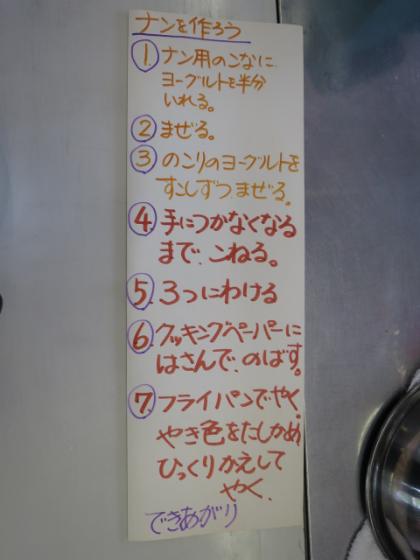 ナンを作ろう
① ナン用のこなに
ヨーグルトを半分
いれる。
② まぜる。
③ のこりのヨーグルトを
すこしずつまぜる。
④ 手につかなくなる
まで、こねる。
⑤ 3つにわける
⑥ クッキングペーパーに
はさんで、のばす。
⑦ フライパンでやく。
やき色をたしかめ
ひっくりかえして
やく。
できあがり